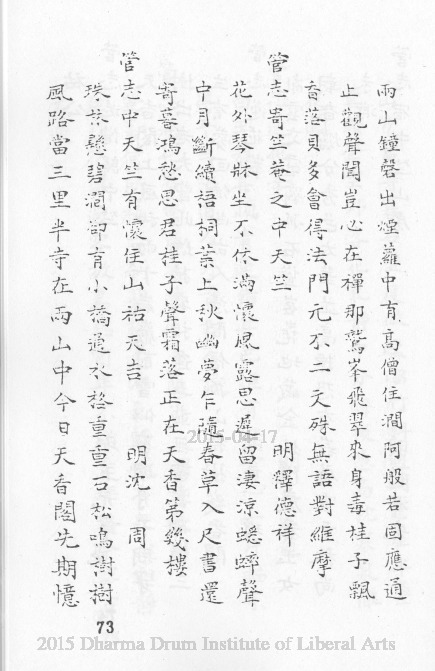 兩山鐘磬出煙蘿中有高僧住澗阿般若固應通
止觀聲聞豈心在禪那鷲峯飛翠來身毒桂子飄
香落貝多會得法門元不二文殊無語對維摩
管志寄竺菴之中天竺　明釋德祥
花外琴牀坐不休滿懷風露思遲留淒涼蟋蟀聲
中月斷續語祠葉上秋幽夢乍隨春草入尺書還
寄暮鴻愁思君桂子聲霜落正在天香第幾樓
管志中天竺有懷住山祐天吉　明沈　周
珠林懸碧澗卻有小橋通水格重重石松鳴樹樹
風路當三里半寺在兩山中今日天香閣先期憶
73
2015-04-17
2015 Dharma Drum Institute of Liberal Arts